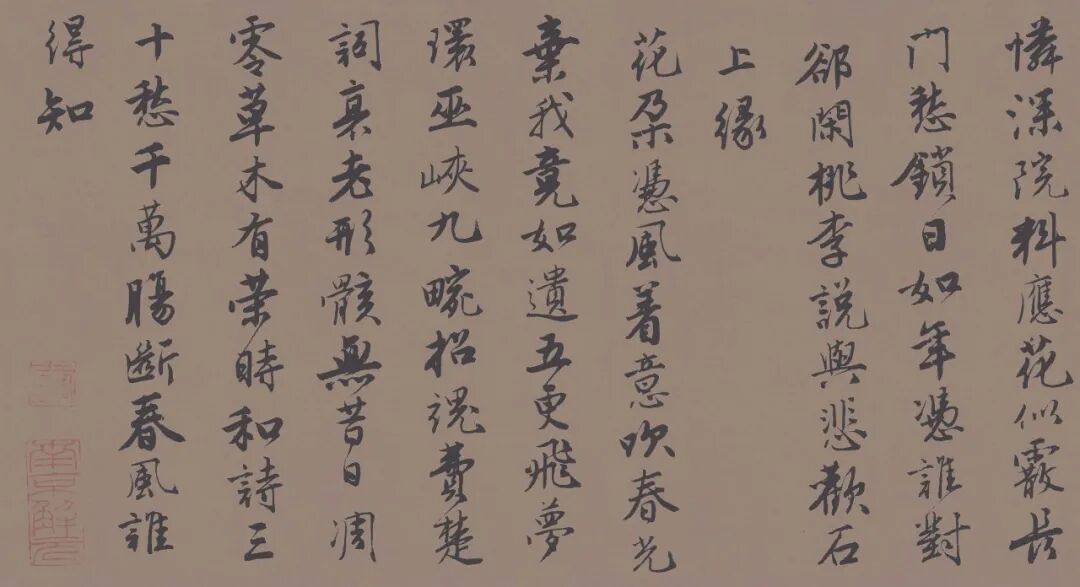 憐深院料應花似霰長
門愁鎖日如年憑誰對
卻閑桃李說與悲歡石
上緣
花朶憑風着意吹春光
棄我竟如遺五更飛夢
環巫峽九畹招魂費楚
詞衰老形骸無昔日凋
零草木有榮時和詩三
十愁千萬腸斷春風誰
得知